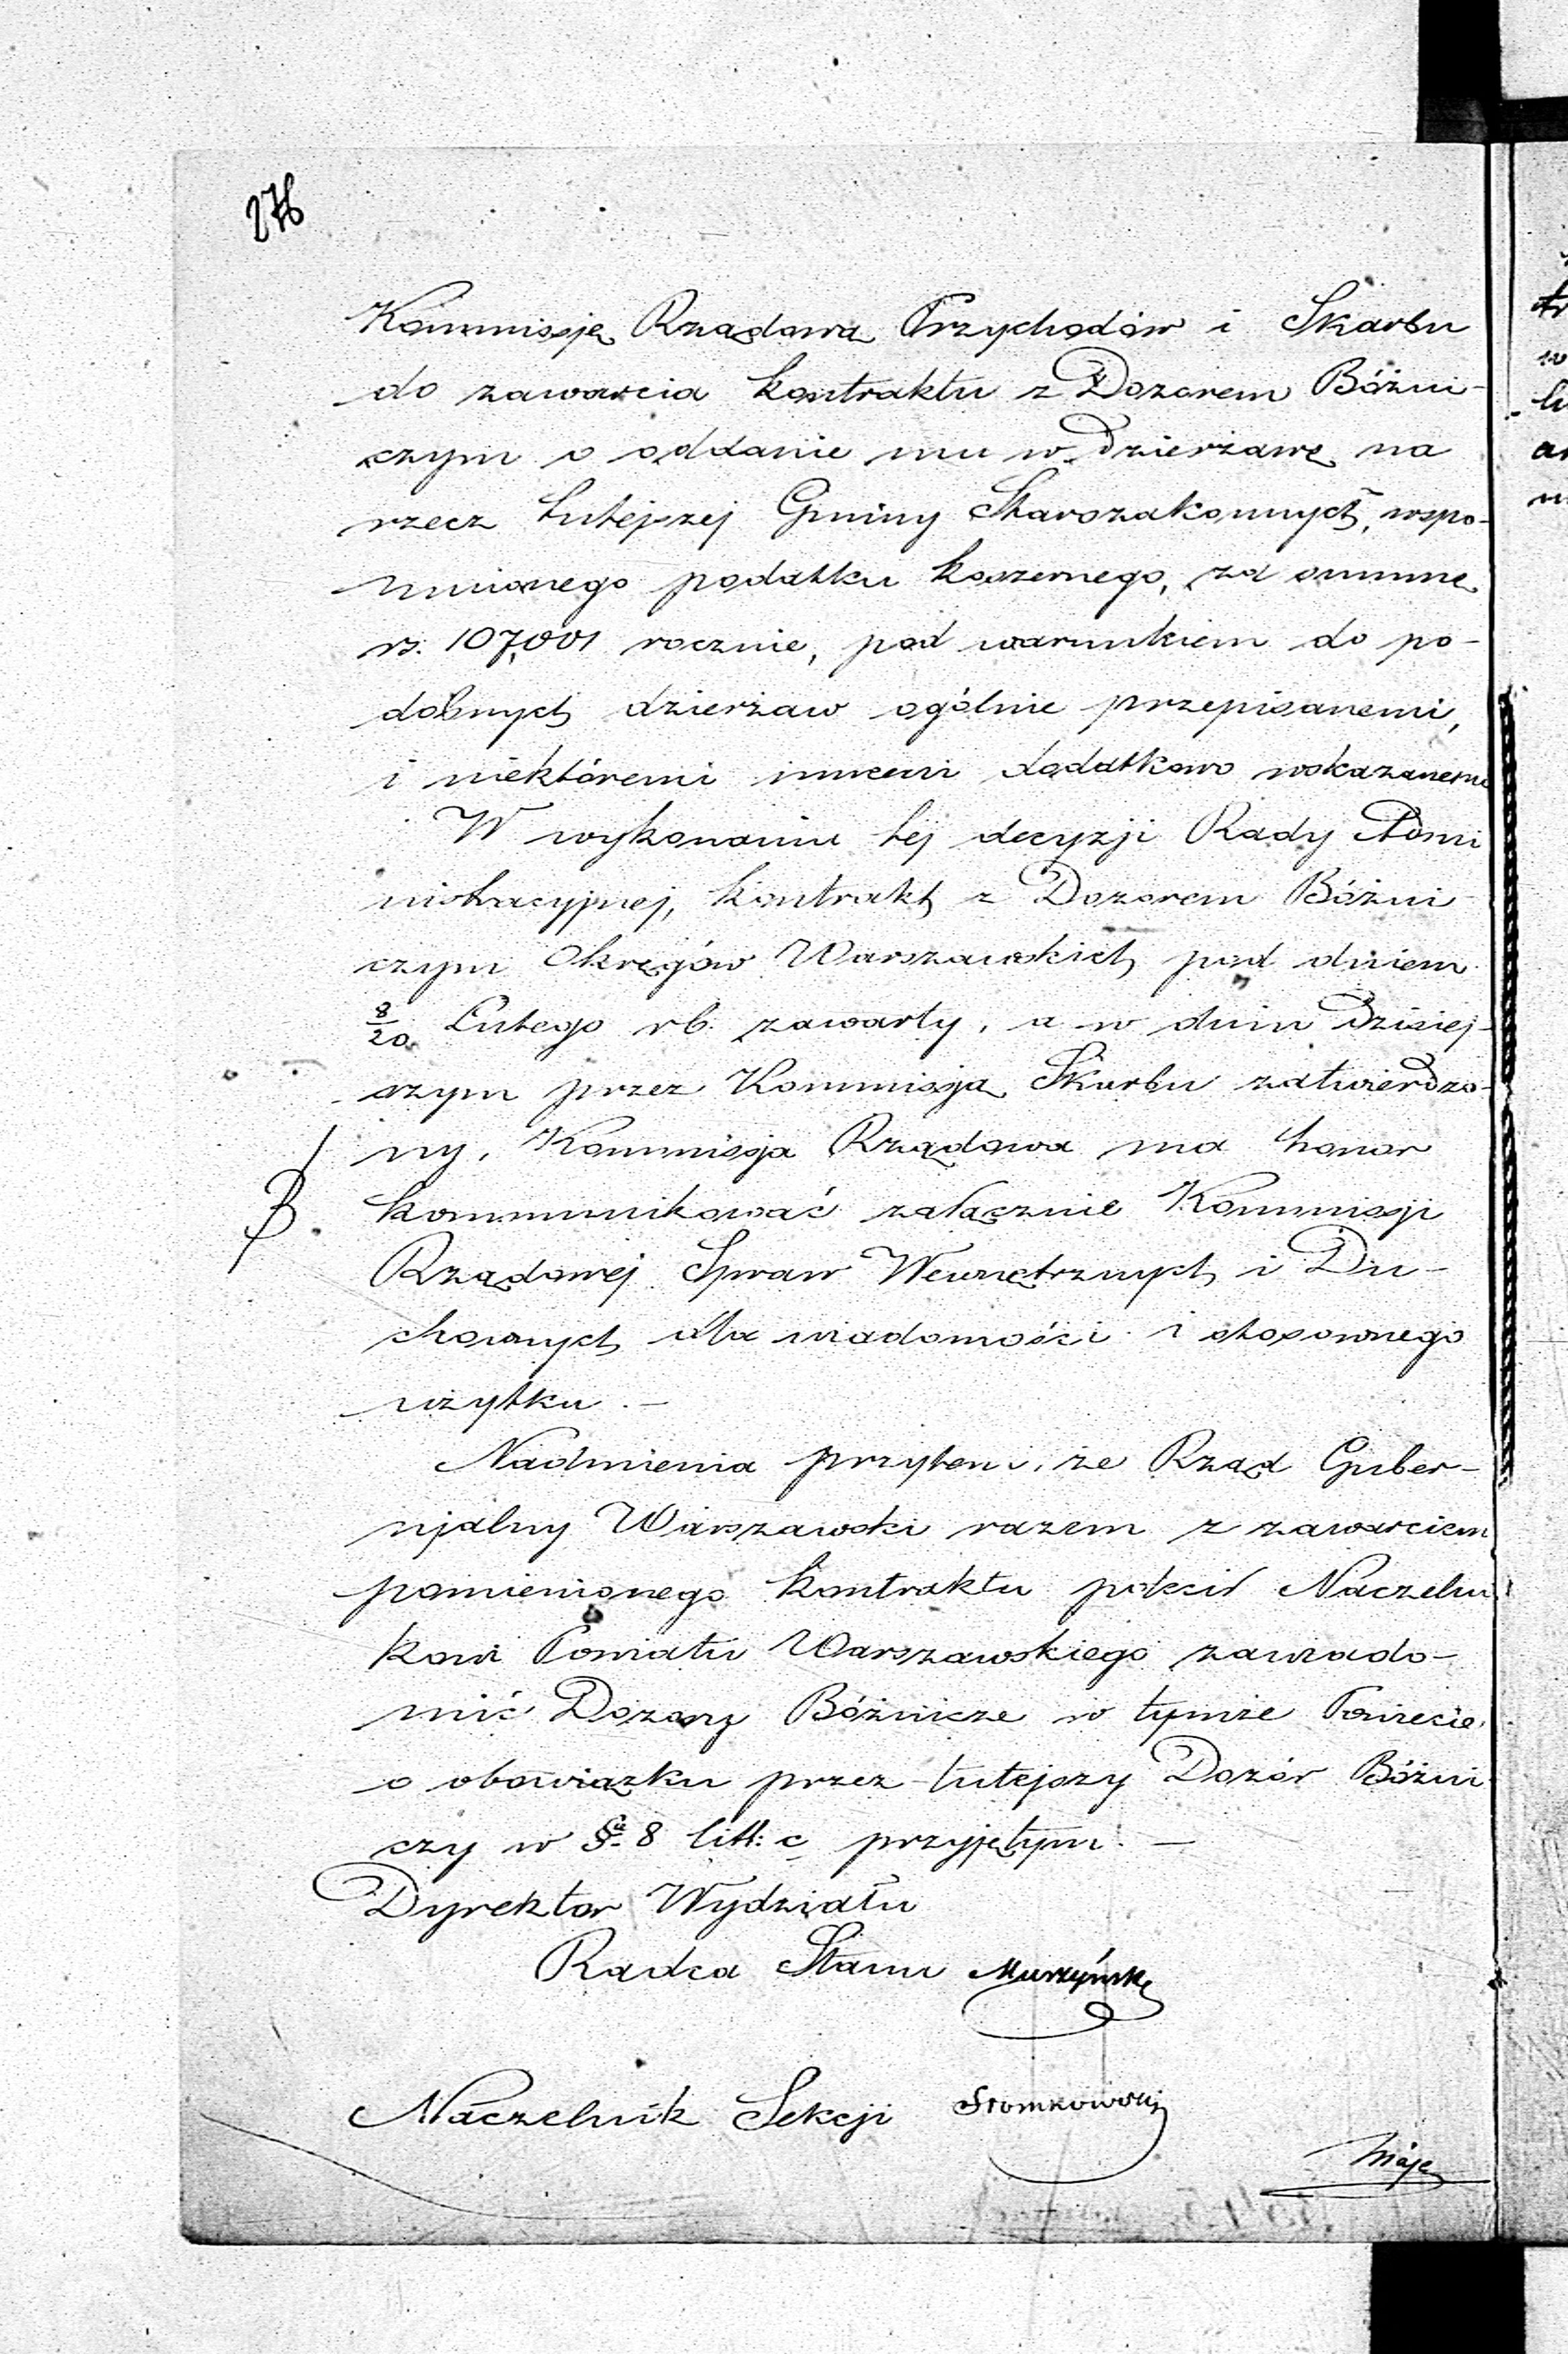 276
Kommissję Rządową Przychodów i Skarbu
do zawarcia kontraktu z Dozorem Bóżni-
czym o oddanie mu w dzierżawę na
rzecz tutejszej Gminy Starozakonnych, wspo-
mnionego podatku koszernego, za summę
rs. 107,001 rocznie, pod warunkiem do po-
dobnych dzierżaw ogólnie przepisanemi,
i niektóremi innemi dodatkowo wskazanemi
W wykonaniu tej decyzji Rady Admi
nistracyjnej, kontrakt z Dozorem Bóżni
czym Okręgów Warszawskich pod dniem
8/20 Lutego rb. zawarty, a w dniu dzisiej-
szym przez Kommissją Skarbu zatwierdzo-
ny, Kommissja Rządowa ma honor
kommunikować załącznie Kommissji
Rządowej Spraw Wewnętrznych i Du-
chownych dla wiadomości i stosownego
użytku. —
Nadmienia przytem, że Rząd Guber-
njalny Warszawski razem z zawarciem
pomienionego kontraktu polecił Naczelni
kowi Powiatu Warszawskiego zawiado-
mić Dozory Bóżnicze w tymże Powiecie,
o obowiązku przez tutejszy Dozór Bóżni
czy w §. 8 litt: c przyjętym. —
Dyrektor Wydziału
Radca Stanu Murzyński
Naczelnik Sekcji Słomkowski